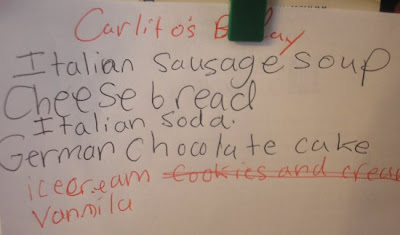 Carlito's B ay
Italian Sausage Soup
Cheese bread
Italian Soda.
German Chocolate cake
icecream Cookies and cream
Vannila